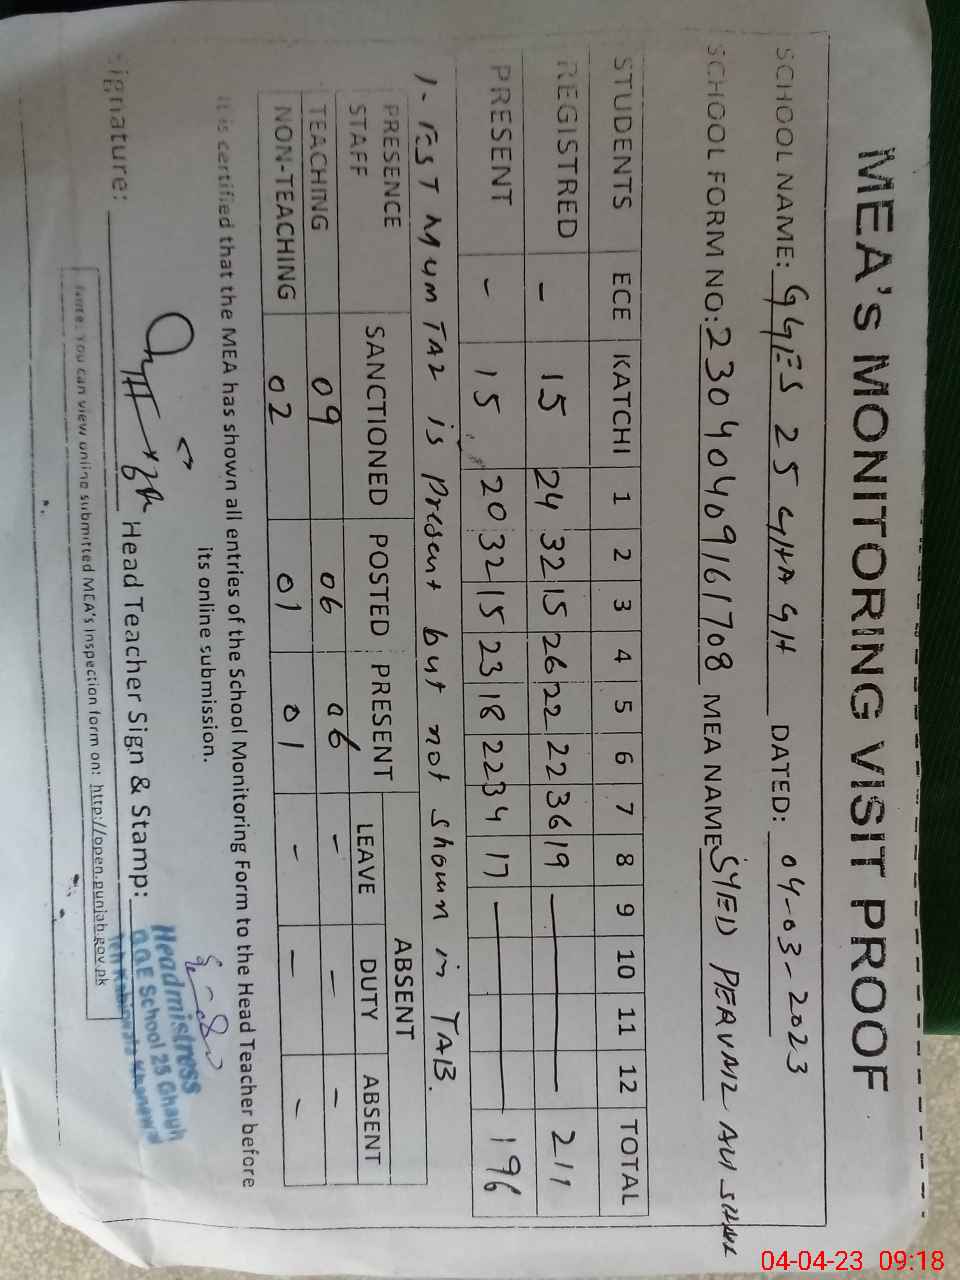 MEA'S MONITORING VISIT PROOF
SCHOOL NAME: GGES 25 GHA GH DATED: 04-03-2023
SCHOOL FORM NO: 23040409161708 MEA NAME SYED PERVAIZ ALI SHAH
STUDENTS ECE KATCHI 1 2 3 4 5 6 7 8 9 10 11 12 TOTAL
REGISTRED - 15 24 32 15 26 22 22 36 19 — 211
PRESENT - 15 20 32 15 23 18 22 34 17 — 196
1- EST MUMTAZ is present but not shown in TAB.
PRESENCE STAFF SANCTIONED POSTED PRESENT ABSENT
LEAVE DUTY ABSENT
TEACHING 09 06 06 - - -
NON-TEACHING 02 01 01 - - -
It is certified that the MEA has shown all entries of the School Monitoring Form to the Head Teacher before
its online submission.
Signature: Head Teacher Sign & Stamp:
Headmistress
G.G.E School 25 Ghagh
Teh Kabirwala Khanewal
Note: You can view online submitted MEA's Inspection form on: http://open.punjab.gov.pk
04-04-23 09:18